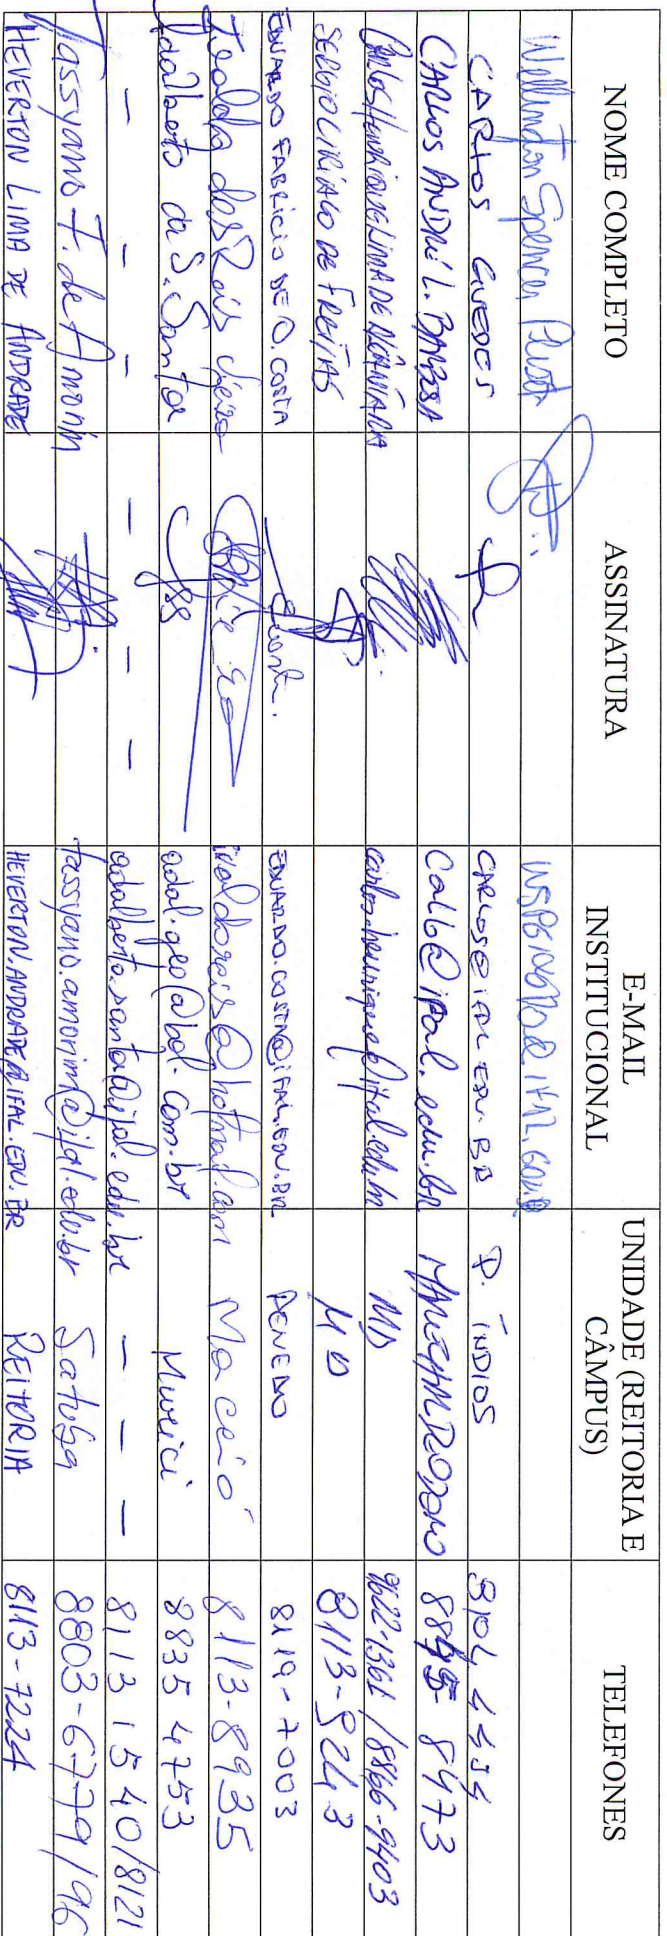 NOME COMPLETO ASSINATURA E-MAIL INSTITUCIONAL UNIDADE (REITORIA E CÂMPUS) TELEFONES
Wellington Spencer
CARLOS GUEDES P. ÍNDIOS
CARLOS ANDRÉ L. BARBOSA calb@ifal.edu.br 8845-8473
CARLOS HENRIQUE LIMA DE ALCÂNTARA carlos.henrique@ifal.edu.br MD 9622-1361 / 8866-9403
SERGIO CIRIACO DE FREITAS MD 8113-9243
EDUARDO FABRICIO DE O. COSTA Ecosta. EDUARDO.COSTA@IFAL.EDU.BR PENEDO 8119-7003
Ivaldo dos Reis ivaldoreis@hotmail.com Maceió 8113-8935
Adalberto da S. Santos adal.geo@bol.com.br Murici 8835 4753
– – – – – – adalberto.santos@ifal.edu.br – – – 8113 1540/8121
Tassyano F. de Amorim tassyano.amorim@ifal.edu.br Satuba 8803-6779/96
HEVERTON LIMA DE ANDRADE HEVERTON.ANDRADE@IFAL.EDU.BR REITORIA 8113-7224